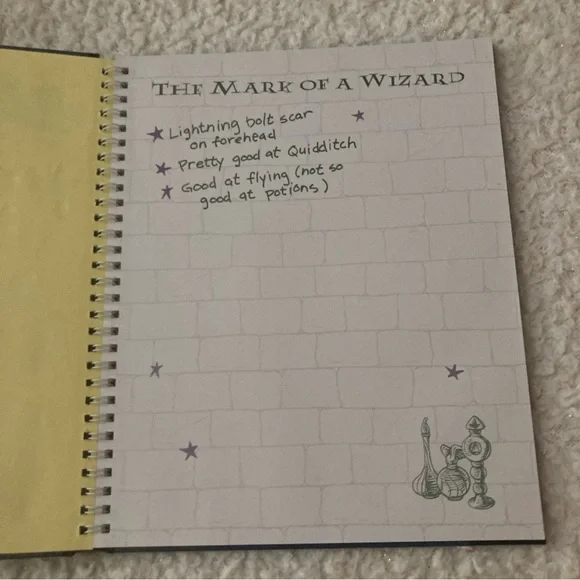 THE MARK OF A WIZARD
Lightning bolt scar
on forehead
Pretty good at Quidditch
Good at flying (not so
good at potions)